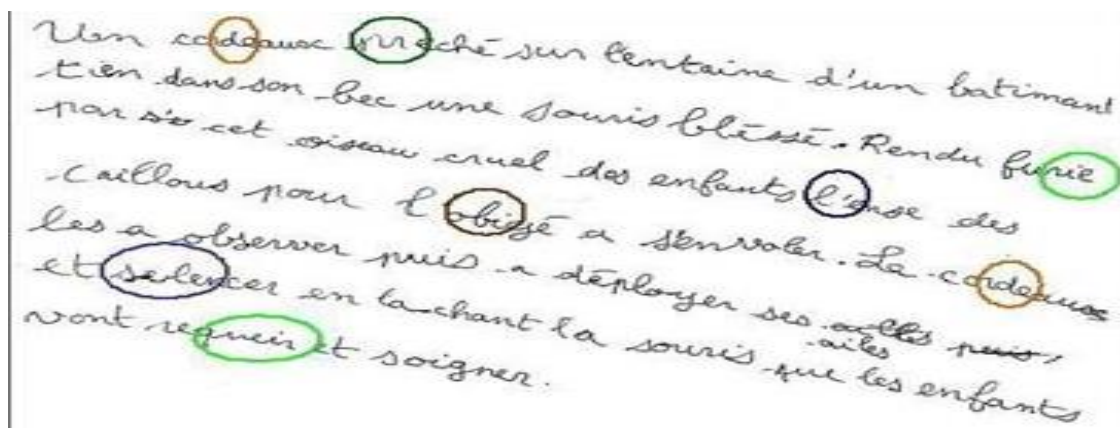 Uen cordeaux preché sur l'entaine d'un batimant
tien dans son bec une souris bléssé. Rendu furie
par cet oiseau cruel des enfants l'anse des
caillous pour l'obigé a s'envoler. Le cordeaux
les a observer puis a déployer ses ailes
et se lencer en lachant la souris que les enfants
vont requeir et soigner.